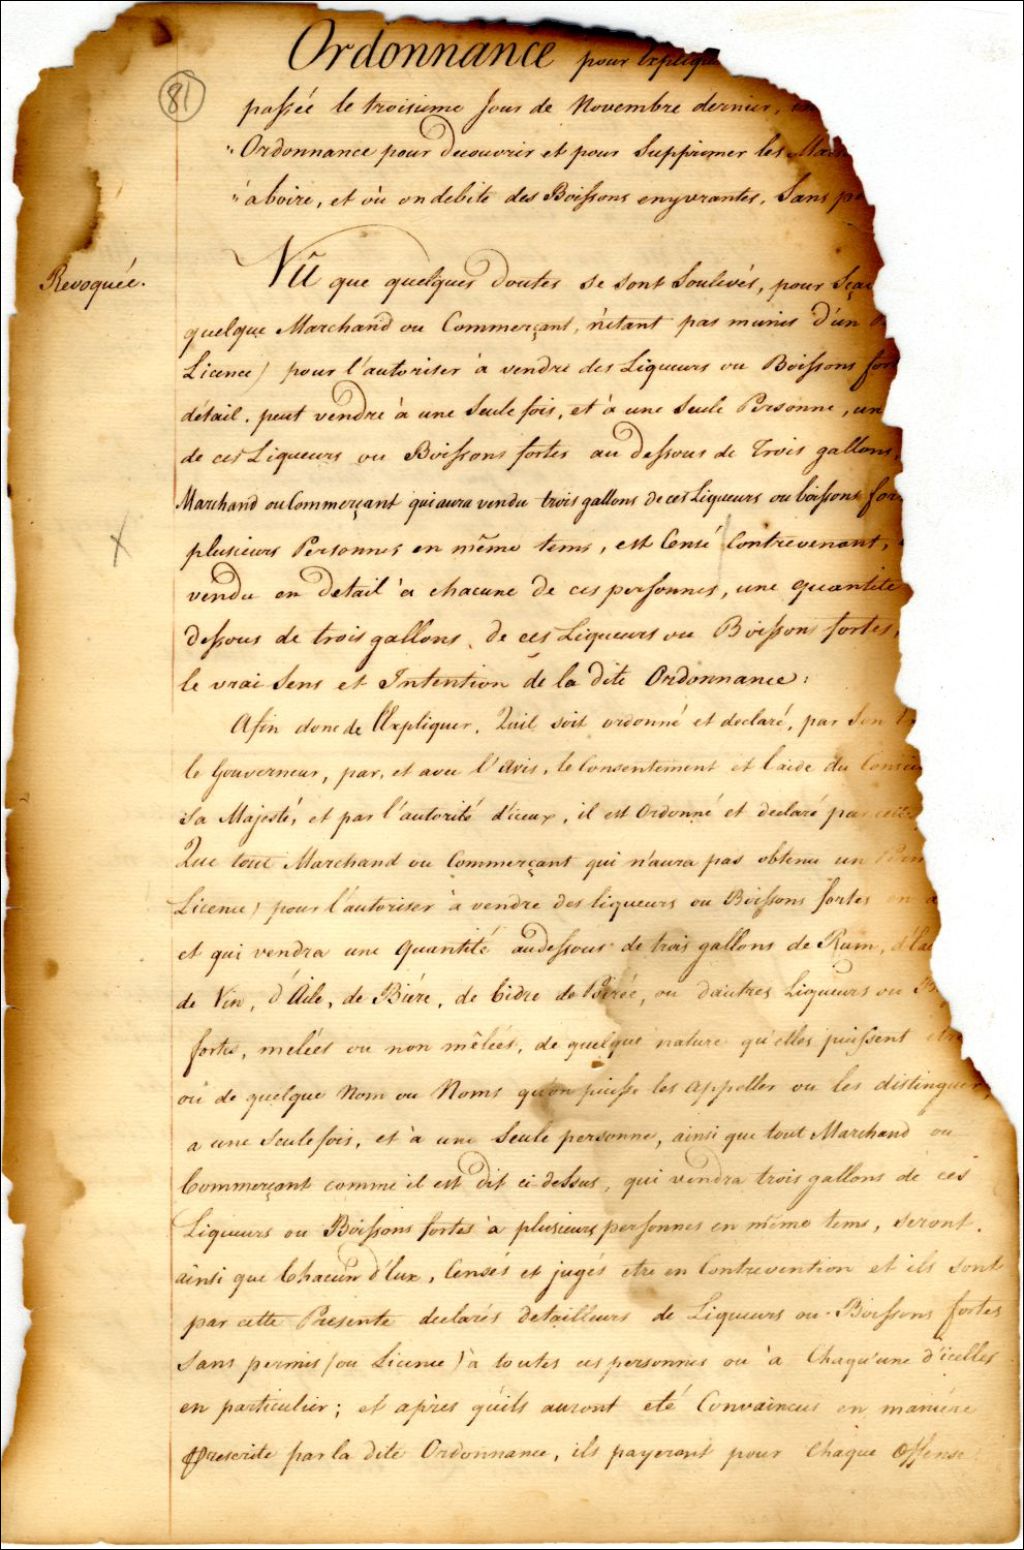 Ordonnance pour Expliqu
81
passée le troisieme Jour de Novembre dernier, in
"Ordonnance pour decouvrir et pour Supprimer les Mais
"à boire, et où on debite des Boissons enyvrantes, Sans pe
Revoquée.
Vû que quelques doutes se sont Soulevés, pour Sça
quelque Marchand ou Commerçant, n'etant pas munis d'un
Licence) pour l'autoriser à vendre des Liqueurs ou Boissons for
détail, peut vendre à une Seule fois, et à une Seule Personne, un
de ces Liqueurs ou Boissons fortes au dessous de Trois gallons,
Marchand ou Commerçant qui aura vendu trois gallons de ces Liqueurs ou boissons for
plusieurs Personnes en même tems, est Censé Contrevenant,
vendu en Detail à chacune de ces personnes, une quantité
dessous de trois gallons, de ces Liqueurs ou Boissons fortes,
le vrai Sens et Intention de la dite Ordonnance:
Afin donc de l'Expliquer, Quil soit ordonné et declaré, par Son
le Gouverneur, par, et avec l'Avis, le Consentement et l'aide du Conseil
Sa Majesté, et par l'autorité d'iceux, il est Ordonné et declaré par cette
Que tout Marchand ou Commerçant qui n'aura pas obtenu un Perm
Licence) pour l'autoriser à vendre des liqueurs ou Boissons fortes en d
et qui vendra une Quantité audessous de trois gallons de Rum, d'Ea
de Vin, d'Aile, de Biére, de Cidre de Poirée, ou d'autres Liqueurs ou B
fortes, melées ou non mêlées, de quelque nature qu'elles puissent etre
ou de quelque Nom ou Noms qu'on puisse les appeller ou les distinguer,
a une Seule fois, et à une Seule personne, ainsi que tout Marchand ou
Commerçant comme il est dit ci-dessus, qui vendra trois gallons de ces
Liqueurs ou Boissons fortes à plusieurs personnes en même tems, seront,
ainsi que Chacun d'Eux, Censés et jugés etre en Contrevention et ils sont
par cette Presente declarés detailleurs de Liqueurs ou Boissons fortes
Sans permis (ou Licence) à toutes ces personnes ou à Chaqu'une d'icelles
en particulier; et après qu'ils auront eté Convaincus en maniére
prescrite par la dite Ordonnance, ils payeront pour Chaque Offense